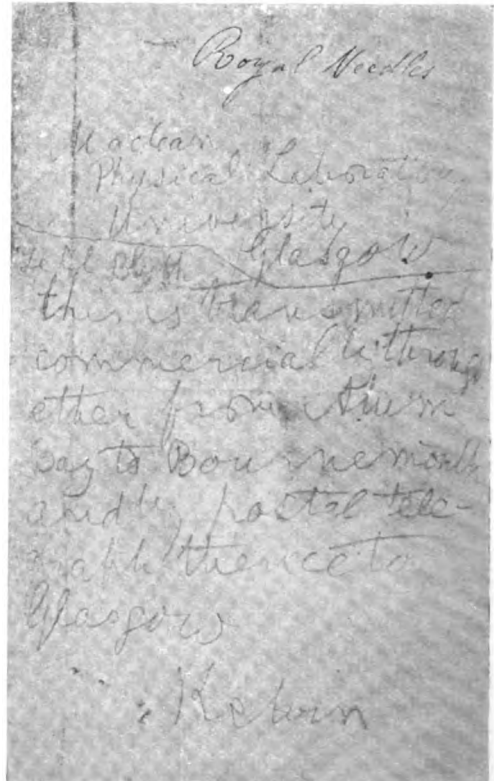 Royal Needles
Maclean
Physical Laboratory
University
Glasgow
Tell Blyth
this is transmitted
commercially through
ether from Alum
bay to Bournemouth
and by postal tele-
graph thence to
Glasgow
Kelvin